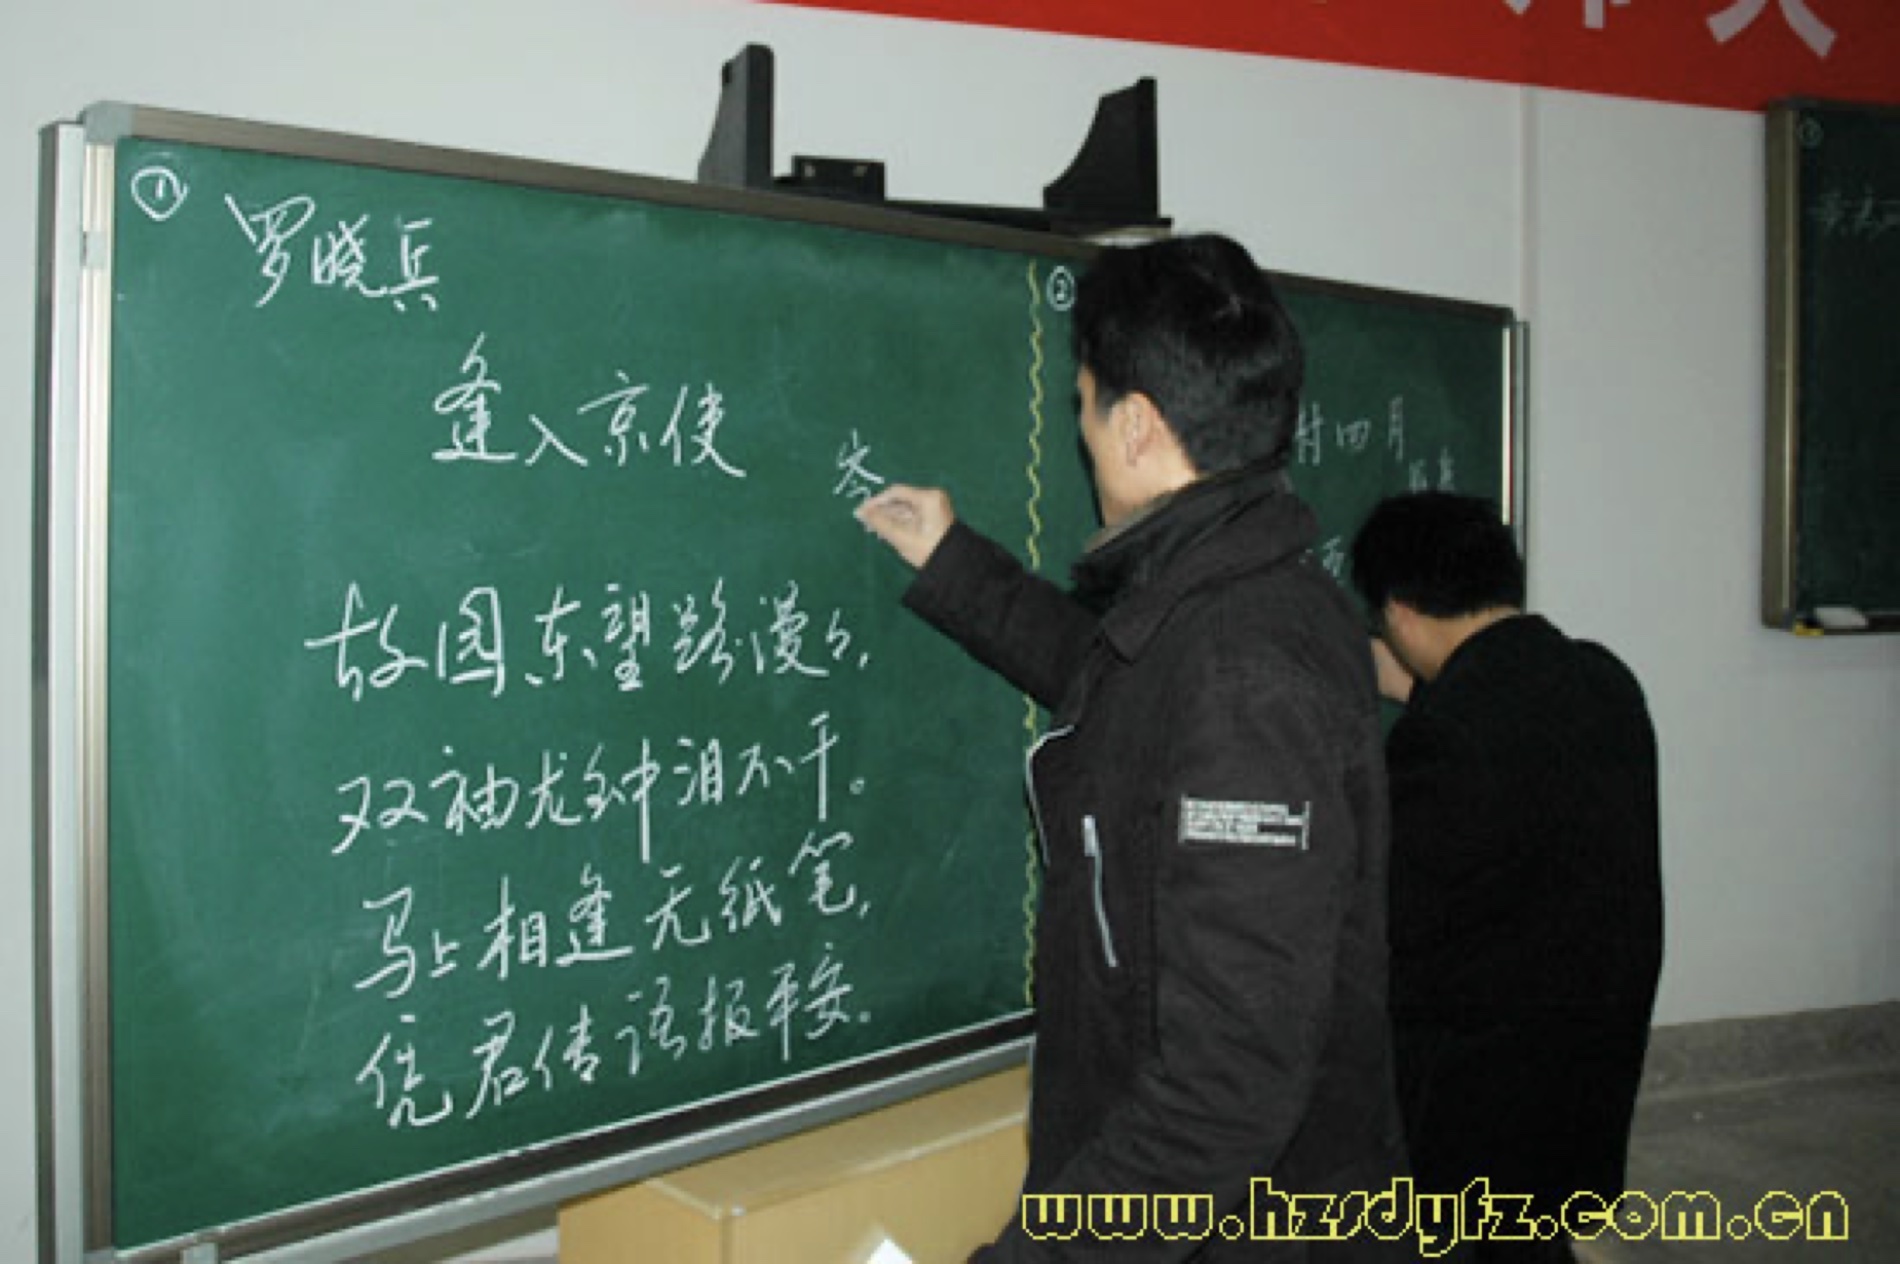 ①
罗晓兵
逢入京使
岑
故园东望路漫々,
双袖龙钟泪不干。
马上相逢无纸笔,
凭君传语报平安.
②
村四月
www.hzsdyfz.com.cn